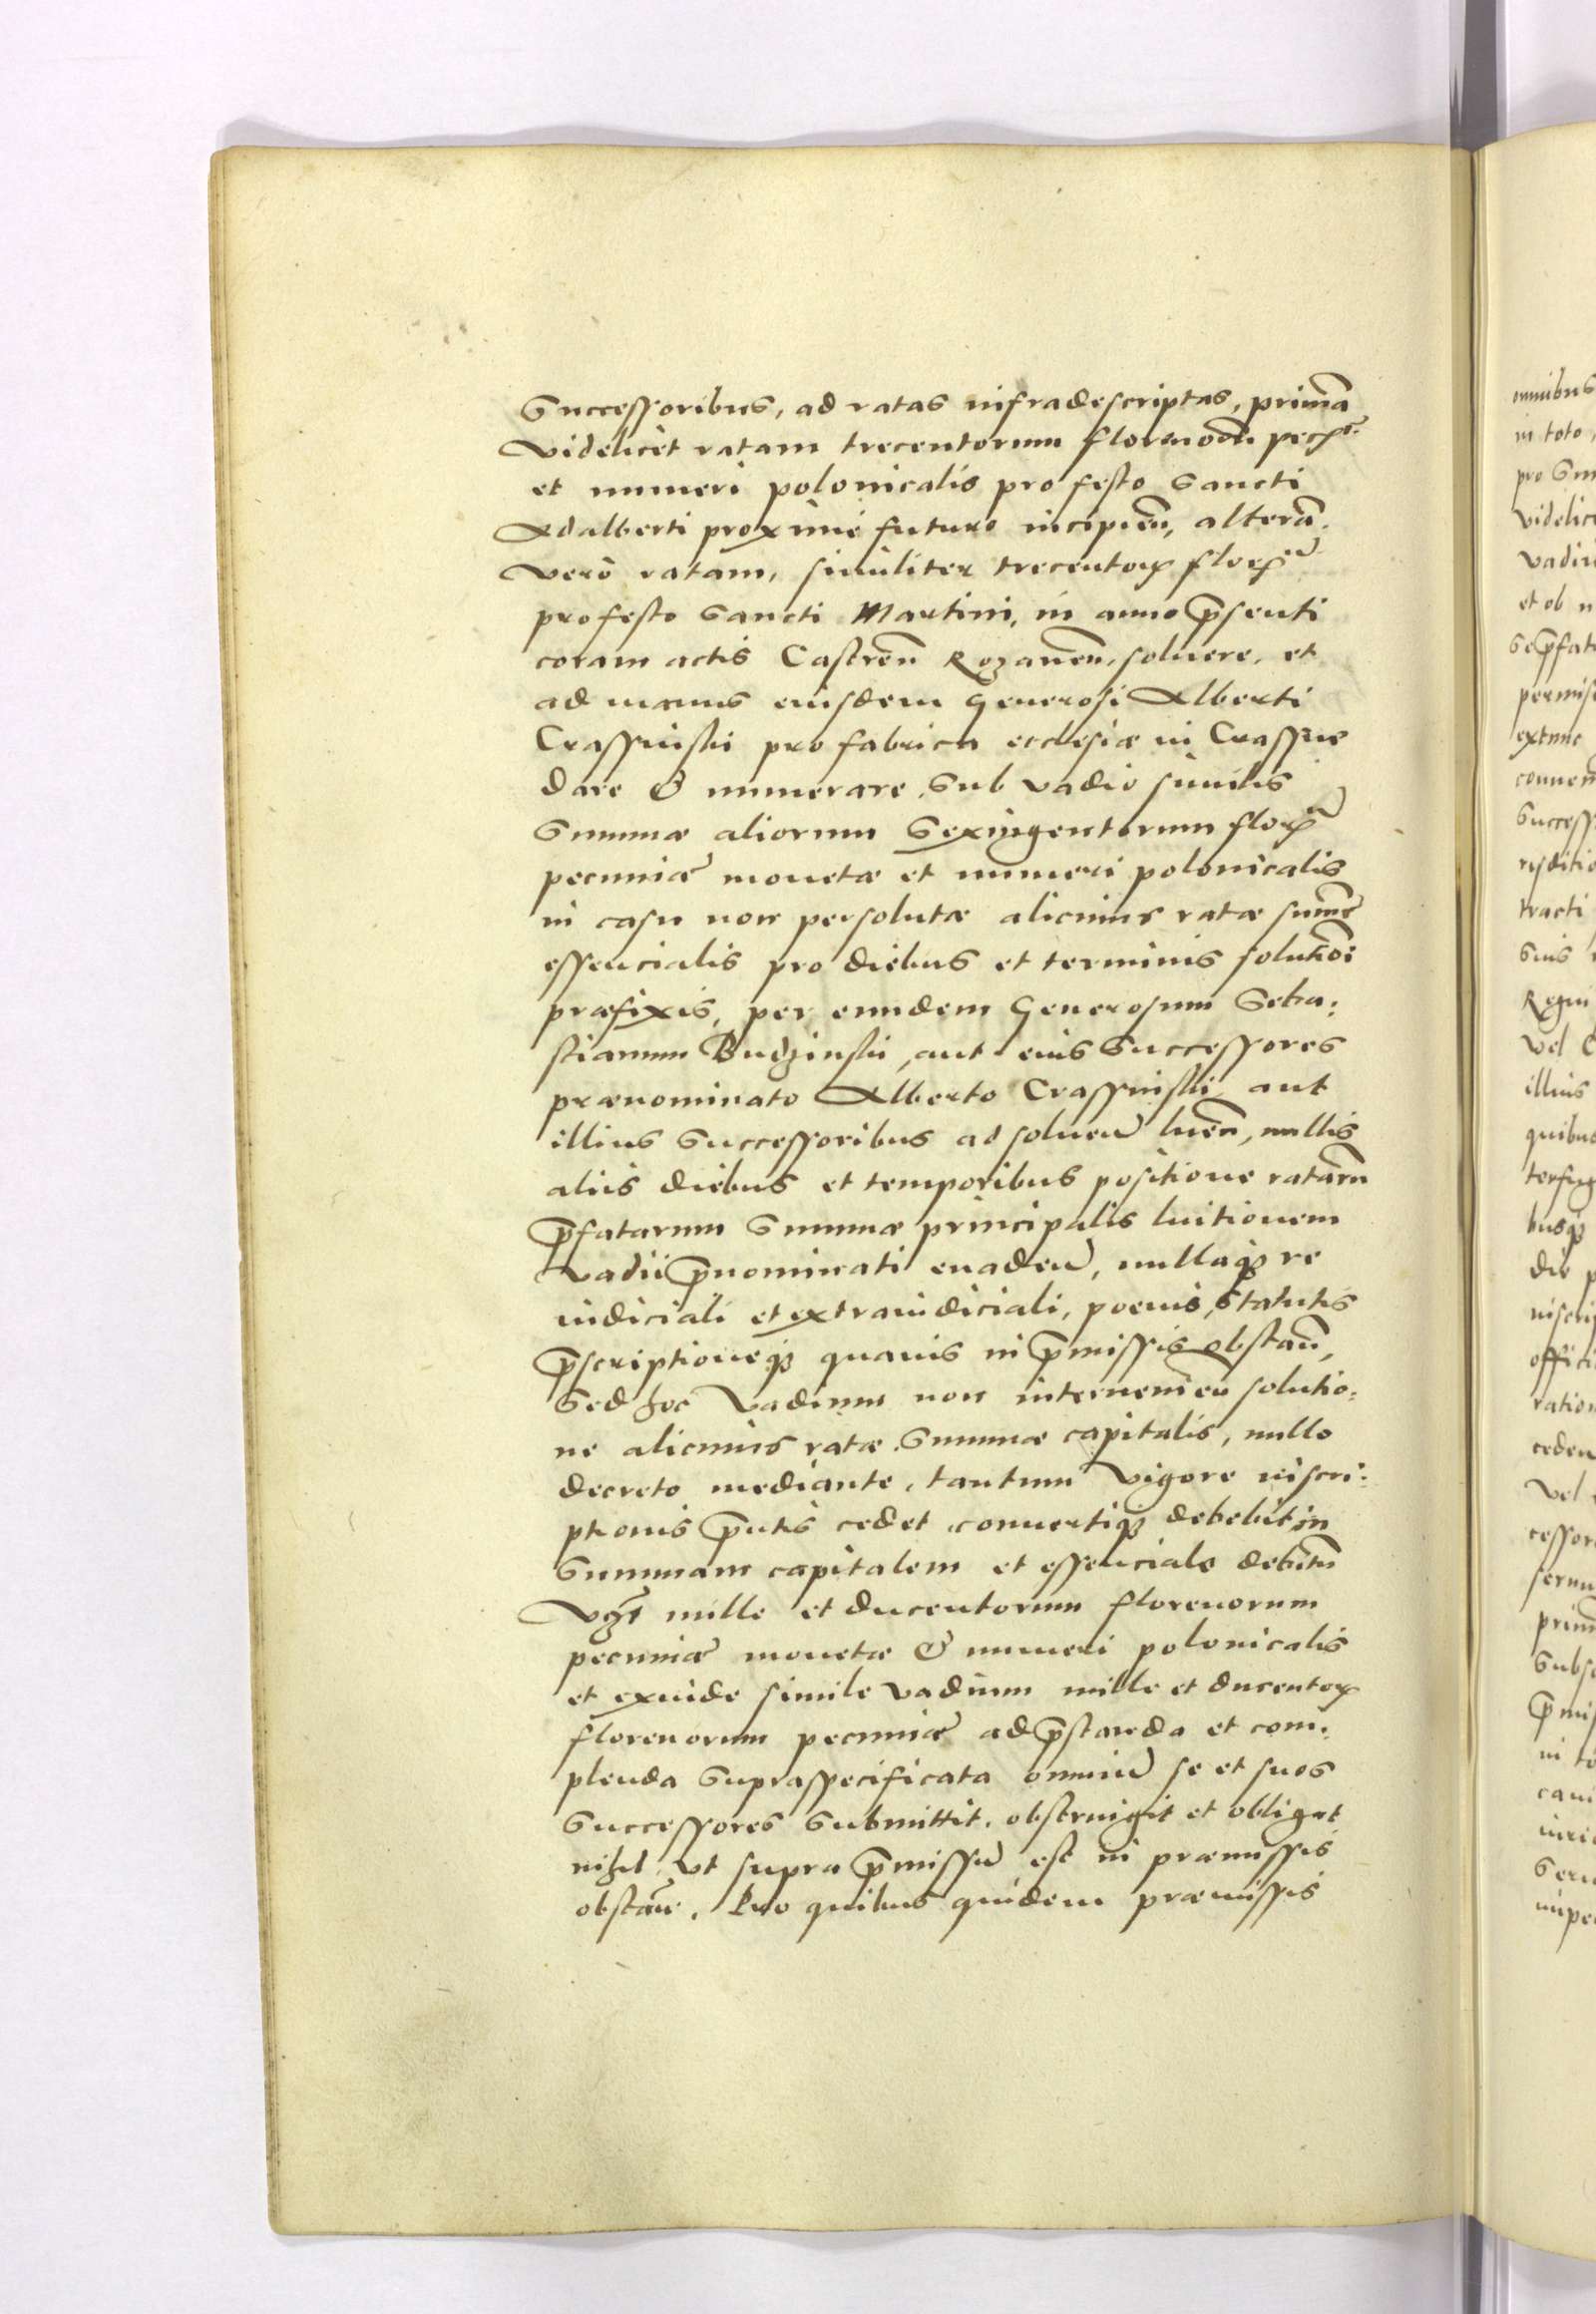 Successoribus, ad ratas infradescriptas, primã
videlicet ratam trecentorum florenorũ pec̃
et numeri polonicalis pro festo Sancti
Adalberti proximè futuro incipieñ, alterã
verò ratam, similiter trecentoꝝ floꝝ
pro festo Sancti Martini, in anno p̃senti
coram actis Castreñ Rozaneñ, soluere, et
ad manus eiusdem Generosi Alberti
Crassinski pro fabrica ecclesiæ in Crassne
dare & numerare, sub vadio similis
Summæ aliorum Sexingentorum floꝝ
pecuniæ monetæ et numeri polonicalis
in casu non persolutæ alicuius ratæ sum̃e
essencialis pro diebus et terminis solutiõi
præfixis, per eundem Generosum Seba:
stianum Budzinski, aut eius Successores
prænominato Alberto Crassinski, aut
illius Successoribus ad solueñ lueñ, nullis
aliis diebus et temporibus positione ratarũ
p̃fatarum Summæ principalis luitionem
vadii p̃nominati euadeñ, nullaqꝫ re
iudiciali et extraiudiciali, poenis, statutis
p̃scriptioneqꝫ quauis in p̃missis obstañ,
Sed hoc Vadium non interueñieñ solutio:
ne alicuius ratæ Summæ capitalis, nullo
decreto mediante, tantum vigore inscri:
ptionis p̃ntis cedet, conuertiqꝫ debebit, in
Summam capitalem et essenciale debitũ
mille et ducentorum florenorum
pecuniæ monetæ & numeri polonicalis
et exinde simile vadium mille et ducentoꝝ
florenorum pecuniæ ad p̃standa et com:
plenda supraspecificata omniũ se et suos
Successores Submittit, obstringit et obligat
nihil vt supra p̃missũ est in præmissis
obstañ. Pro quibus quidem præmissis